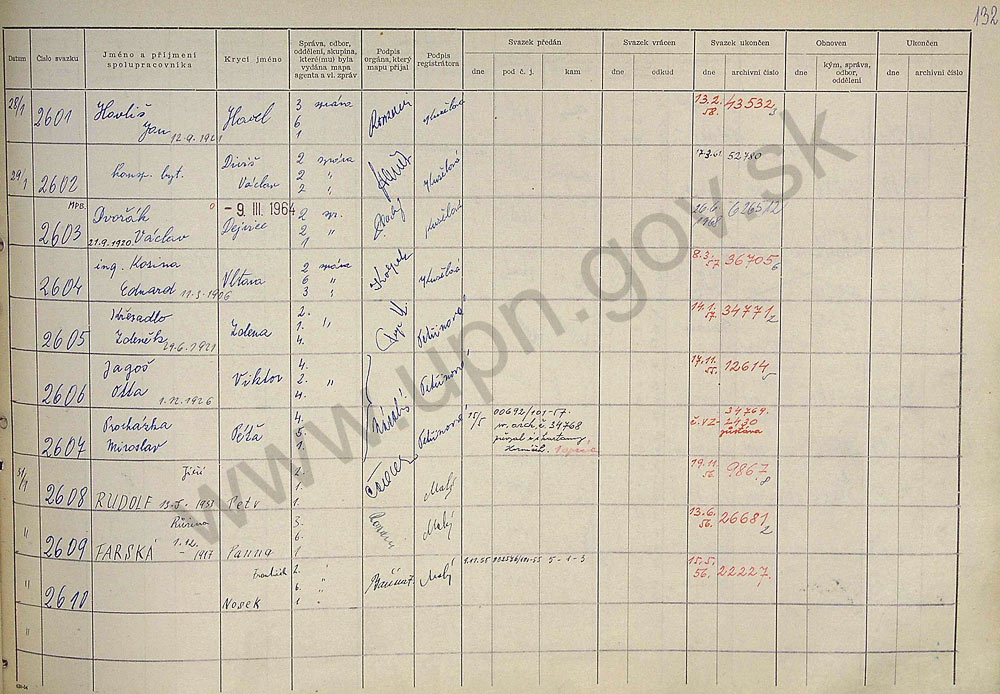 132
Datum
Číslo svazku
Jméno a příjmení
spolupracovníka
Krycí jméno
Správa, odbor,
oddělení, skupina,
které(mu) byla
vydána mapa
agenta a vl. zpráv
Podpis
orgána, který
mapu přijal
Podpis
registrátora
Svazek předán
dne
pod č. j.
kam
Svazek vrácen
dne
odkud
Svazek ukončen
dne
archivní číslo
Obnoven
dne
kým, správa,
odbor,
oddělení
Ukončen
dne
archivní číslo
28/1 2601 Havliš
Jan 12.9.1921
Havel
3 správa
6
1
13.2.
58. 43532
3
29/1 2602 konsp. byt.
Diviš
Václav
2 správa
2 "
2 "
52780
MPB.
2603 Dvořák
21.9.1920 Václav
0
- 9. III. 1964
Dejvice
2 spr.
2 "
1
26.6.
1968 626512
2604 ing. Kosina
Eduard 11.3.1906
Vltava
2 správa
6 "
3 "
8.3.
57. 36705
6
2605 Křesadlo
Zdeněk 29.6.1921
Zdena
2.
1. "
4.
Petřinová
14.1.
57. 34771
2
2606 Jagoš
Otta
1.12.1926
Viktor
4.
2. "
4.
Petřinová
17.11.
55. 12614
5
2607 Procházka
Miroslav
Péťa
4.
5.
1.
Petřinová
15/5 00692/101-57.
arch. č. 34768
34769.
č. VZ-2430
31/1 2608 Jiří
RUDOLF 13.5. 1933
Petr
2.
1.
1.
Malý
19.11.
56. 9867
8
" 2609 Růžena
FARSKÁ 1.12.
- 1917
Panna
3.
6.
1
Malý
13.6.
56. 26681
2
" 2610
Nosek
2.
6. "
1 "
Malý
5-1-3
15.5.
56. 22227.
"
www.upn.gov.sk